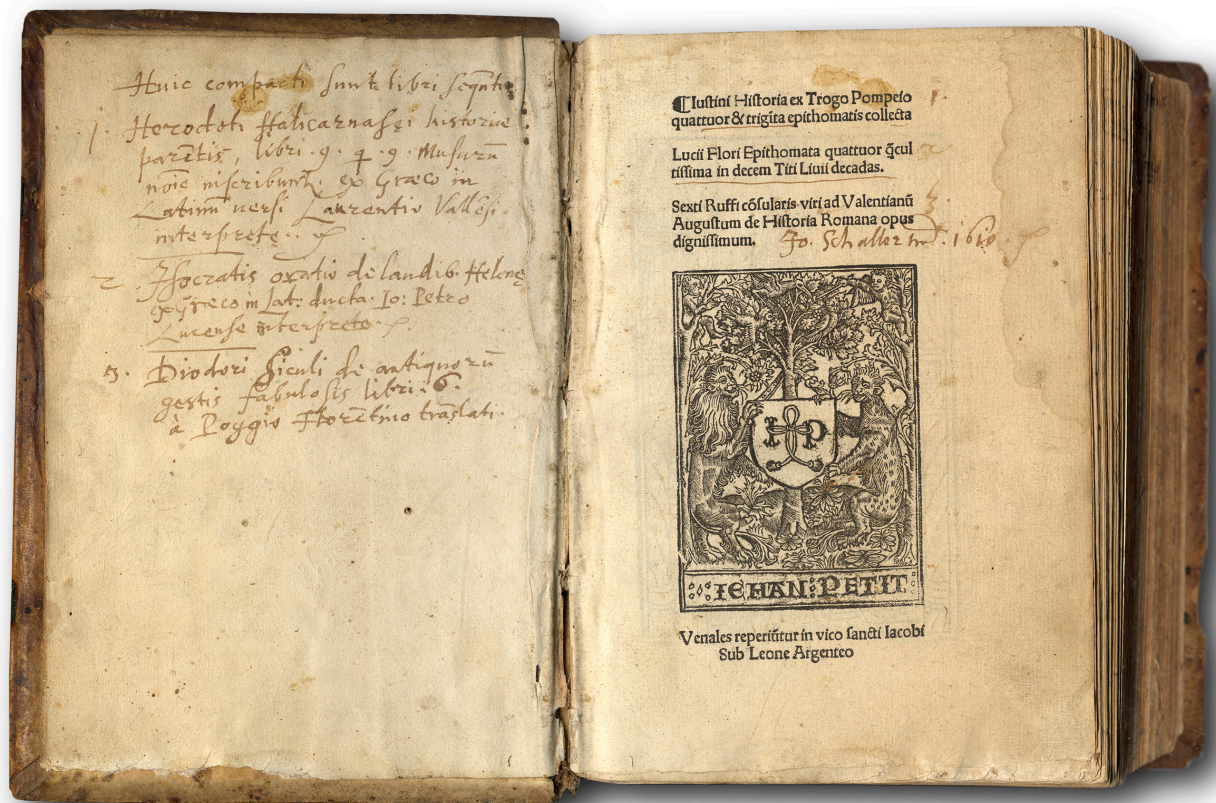 Huic compacti sunt libri seqũtes
1. Herodoti Halicarnasęi historiae
parẽtis, libri .9. q̃ .9. Musarũ
noĩe inscribunt̃. ex Graeco in
Latinũ versi Laurentio Vallēsi.
interpretę..
2 Isocratis oratio de laudib. Helenę
ex Graeco in Lat. ducta. Io: Petro
Lucense interprete.
3. Diodori Siculi de antiquorũ
gestis fabulosis libri .6.
à Poggio Florẽtino trãslati.
⁋Iuſtini Hiſtoria ex Trogo Pompeio 1.
quattuor & trigĩta epithomatis collecta
Lucii Flori Epithomata quattuor q̃cul 2
tiſſima in decem Titi Liuii decadas.
Sexti Ruffi cõſularis viri ad Valentianũ 3
Auguſtum de Hiſtoria Romana opus
digniſſimum. Jo. Schaller
I P
IEHAN PETIT
Venales reperiũtur in vico ſancti Iacobi
Sub Leone Argenteo